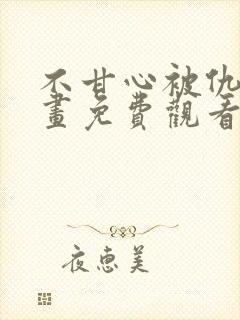 不甘心被仇
畫免費觀看
夜惠美